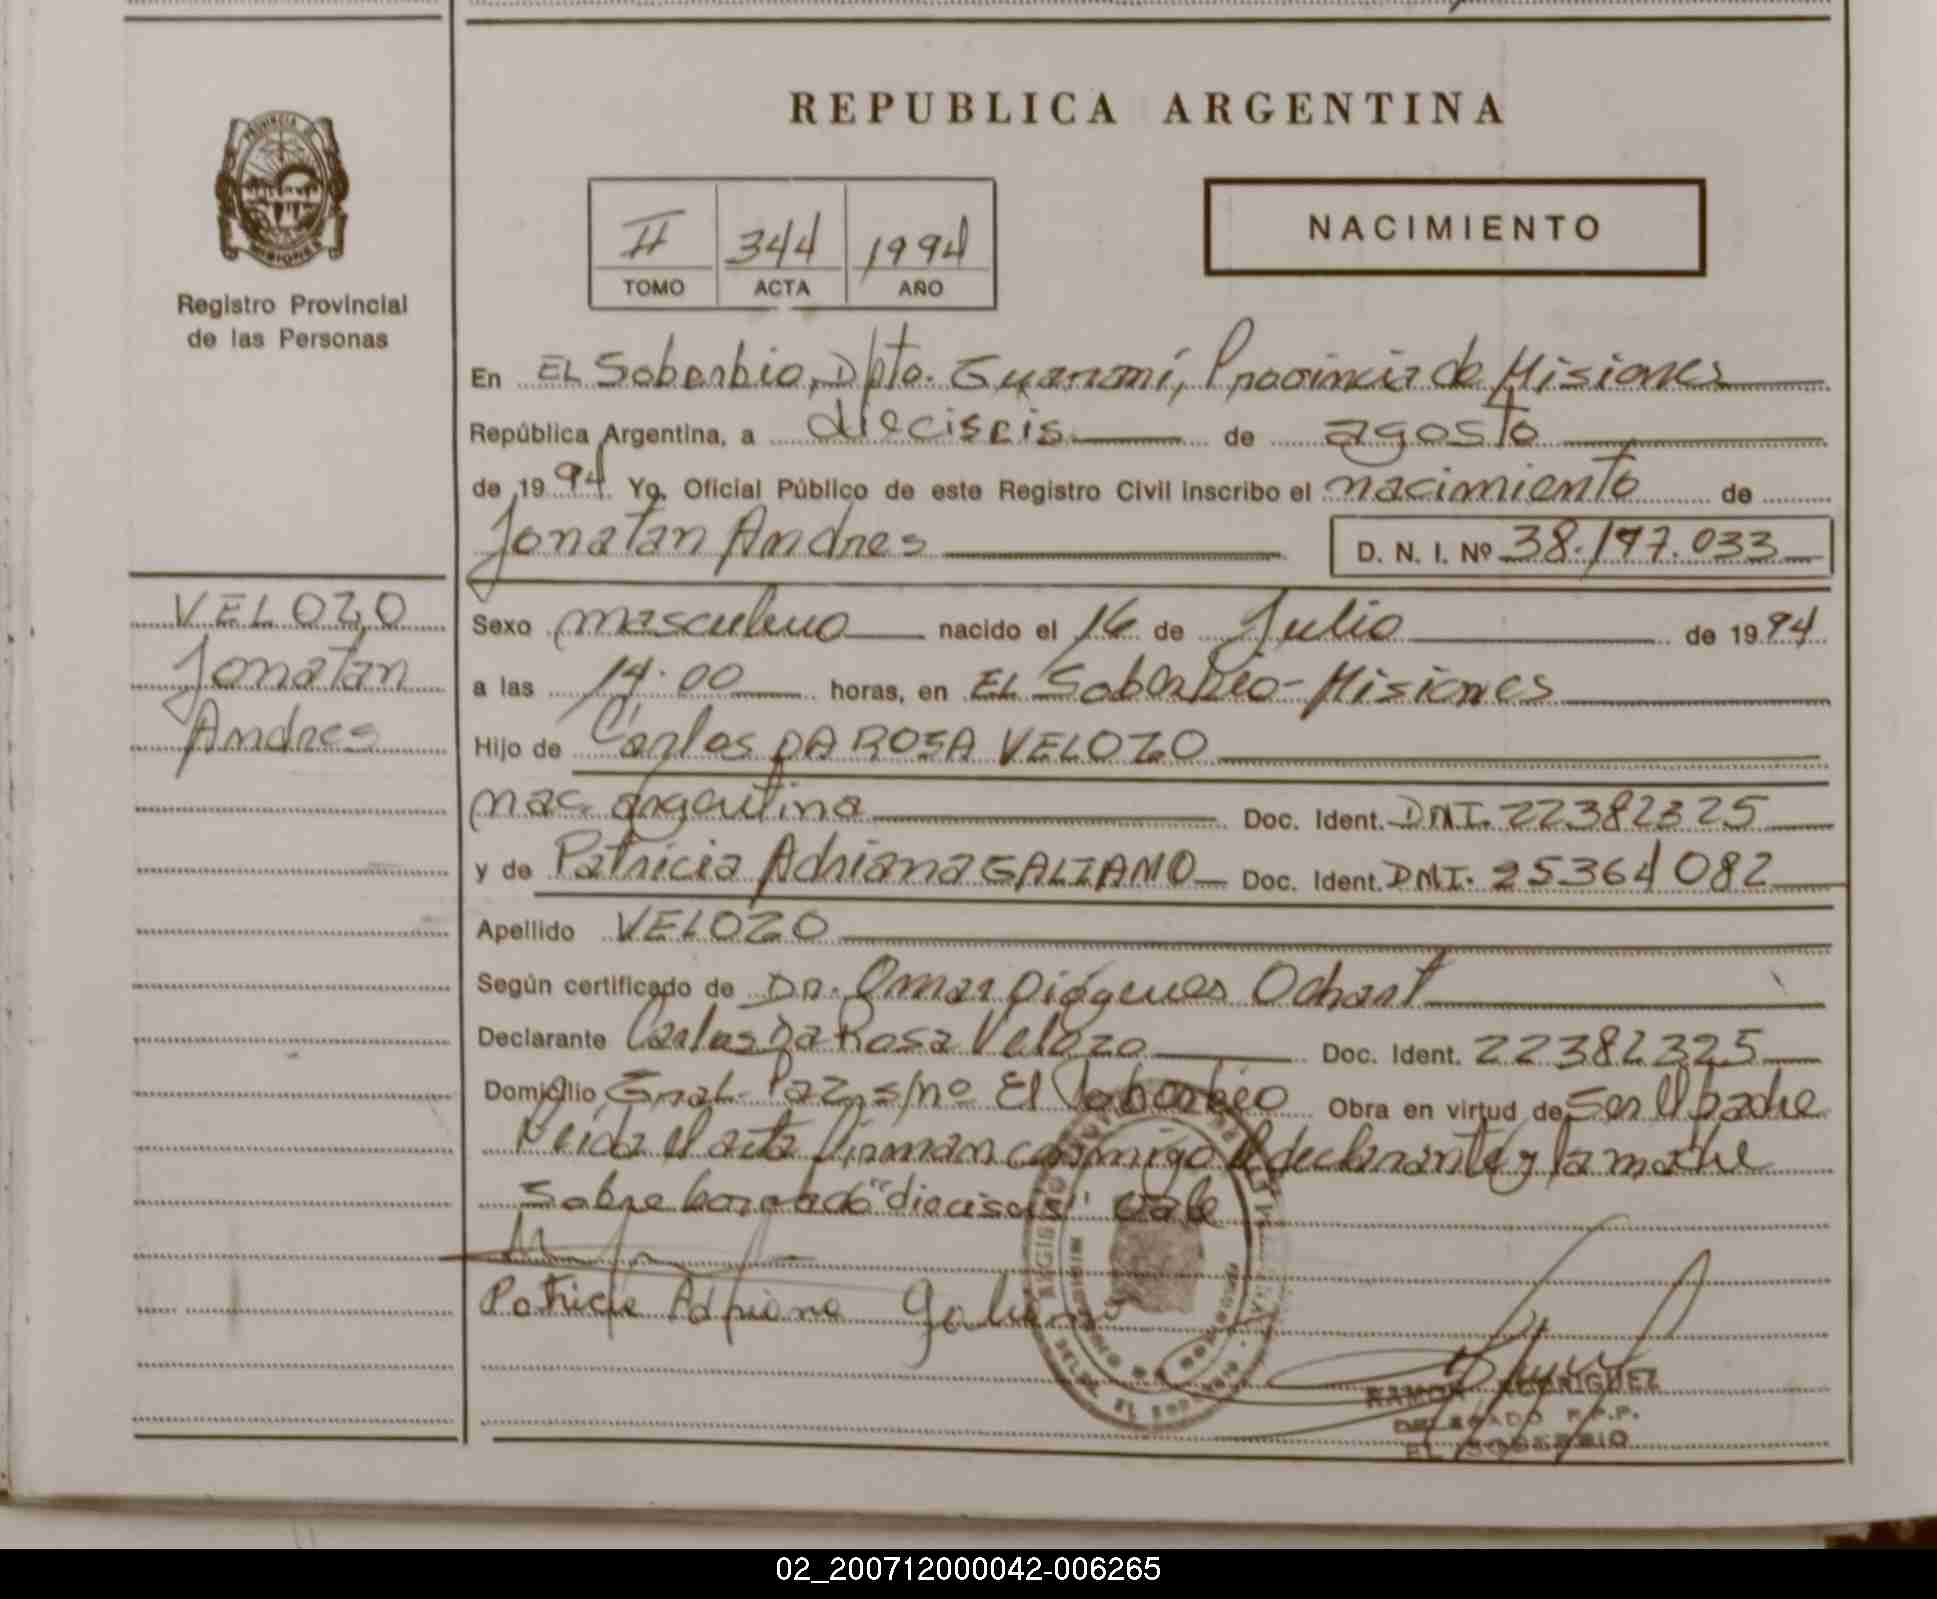 REPUBLICA ARGENTINA
PROVINCIA DE MISIONES
Registro Provincial
de las Personas
II 344 1994
TOMO ACTA AÑO
NACIMIENTO
En EL Soberbio, Dpto. Guaraní, Provincia de Misiones
República Argentina, a dieciseis de agosto
de 1994. Yo, Oficial Público de este Registro Civil inscribo el nacimiento de
Jonatan Andres D. N. I. Nº 38.197.033
VELOZO
Jonatan
Andres
Sexo masculino nacido el 16 de Julio de 1994
a las 14.00 horas, en EL Soberbio - Misiones
Hijo de Carlos DA ROSA VELOZO
nac. argentina Doc. Ident. DNI. 22382325
y de Patricia Adriana GALIANO Doc. Ident. DNI. 25364082
Apellido VELOZO
Según certificado de Dr. Omar Diógenes
Declarante Carlos Da Rosa Velozo Doc. Ident. 22382325
Domicilio Gral. Paz s/nº El Soberbio Obra en virtud de Ser el padre
Leida el acta firman conmigo el declarante y la madre
Sobre borrado "dieciseis" vale
Patricia Adriana Galiano
RAMON RODRIGUEZ
DELEGADO R.P.P.
EL SOBERBIO
02_200712000042-006265